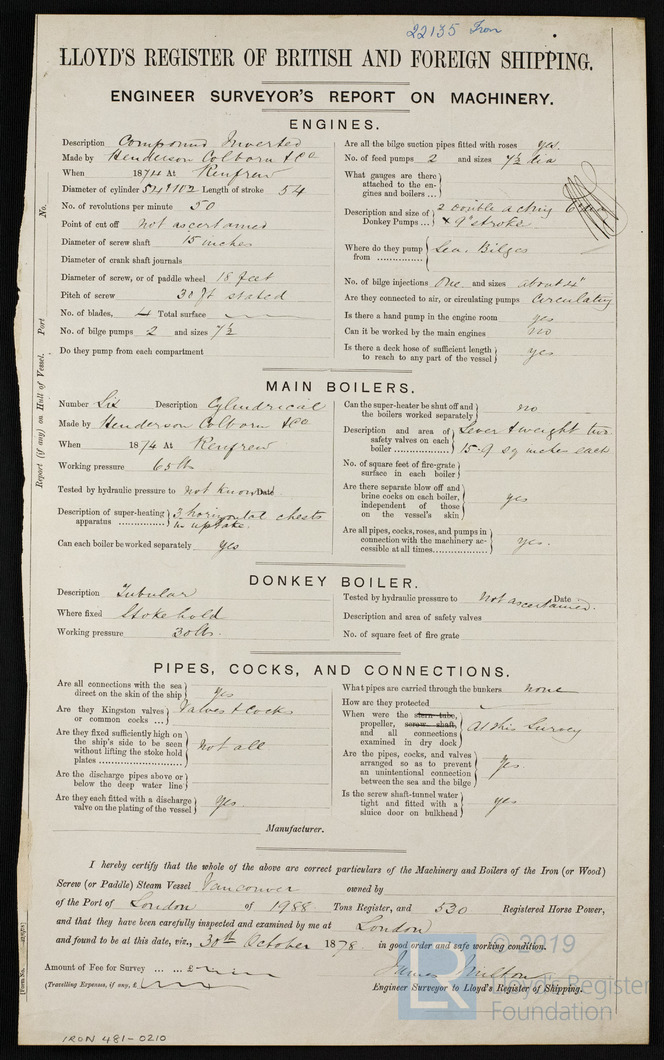 22135 Iron
LLOYD'S REGISTER OF BRITISH AND FOREIGN SHIPPING.
ENGINEER SURVEYOR'S REPORT ON MACHINERY.
ENGINES.
Description Compound Inverted
Made by Henderson Colborn & Co
When 1874 At Renfrew
Diameter of cylinder 54" & 102 Length of stroke 54
No. of revolutions per minute 50
Point of cut off not ascertained
Diameter of screw shaft 15 inches
Diameter of crank shaft journals
Diameter of screw, or of paddle wheel 18 feet
Pitch of screw 30 ft stated
No. of blades, 4 Total surface
No. of bilge pumps 2 and sizes 7½
Do they pump from each compartment
Are all the bilge suction pipes fitted with roses yes.
No. of feed pumps 2 and sizes 7½ dia
What gauges are there
attached to the en-
gines and boilers ...
Description and size of
Donkey Pumps ... 2 Double acting
9" stroke
Where do they pump
from .............. Sea. Bilges
No. of bilge injections One and sizes about 4"
Are they connected to air, or circulating pumps Circulating
Is there a hand pump in the engine room yes
Can it be worked by the main engines no
Is there a deck hose of sufficient length
to reach to any part of the vessel yes
Report (if any) on Hull of Vessel. Port No.
MAIN BOILERS.
Number Six Description Cylindrical
Made by Henderson Colborn & Co
When 1874 At Renfrew
Working pressure 65 lbs
Tested by hydraulic pressure to not known Date
Description of super-heating
apparatus .............. 3 horizontal chests
in uptake.
Can each boiler be worked separately yes
Can the super-heater be shut off and
the boilers worked separately no
Description and area of
safety valves on each
boiler ................ Lever & weight two
15.9 sq inches each
No. of square feet of fire-grate
surface in each boiler
Are there separate blow off and
brine cocks on each boiler,
independent of those
on the vessel's skin yes
Are all pipes, cocks, roses, and pumps in
connection with the machinery ac-
cessible at all times............... yes.
DONKEY BOILER.
Description Tubular
Where fixed Stokehold
Working pressure 30 lbs.
Tested by hydraulic pressure to Not ascertained. Date
Description and area of safety valves
No. of square feet of fire grate
PIPES, COCKS, AND CONNECTIONS.
Are all connections with the sea
direct on the skin of the ship Yes
Are they Kingston valves
or common cocks ... Valves & Cocks
Are they fixed sufficiently high on
the ship's side to be seen
without lifting the stoke hold
plates ........................ Not all
Are the discharge pipes above or
below the deep water line
Are they each fitted with a discharge
valve on the plating of the vessel Yes
What pipes are carried through the bunkers none
How are they protected
When were the stern tube,
propeller, screw shaft,
and all connections
examined in dry dock At this Survey
Are the pipes, cocks, and valves
arranged so as to prevent
an unintentional connection
between the sea and the bilge Yes.
Is the screw shaft-tunnel water
tight and fitted with a
sluice door on bulkhead yes
Manufacturer.
I hereby certify that the whole of the above are correct particulars of the Machinery and Boilers of the Iron (or Wood)
Screw (or Paddle) Steam Vessel Vancouver owned by
of the Port of London of 1988 Tons Register, and 530 Registered Horse Power,
and that they have been carefully inspected and examined by me at London
and found to be at this date, viz., 30th October 1878 in good order and safe working condition.
Amount of Fee for Survey ... ... £
(Travelling Expenses, if any, £
James Milton
Engineer Surveyor to Lloyd's Register of Shipping.
© 2019
LR
Lloyd's Register
Foundation
IRON 481-0210